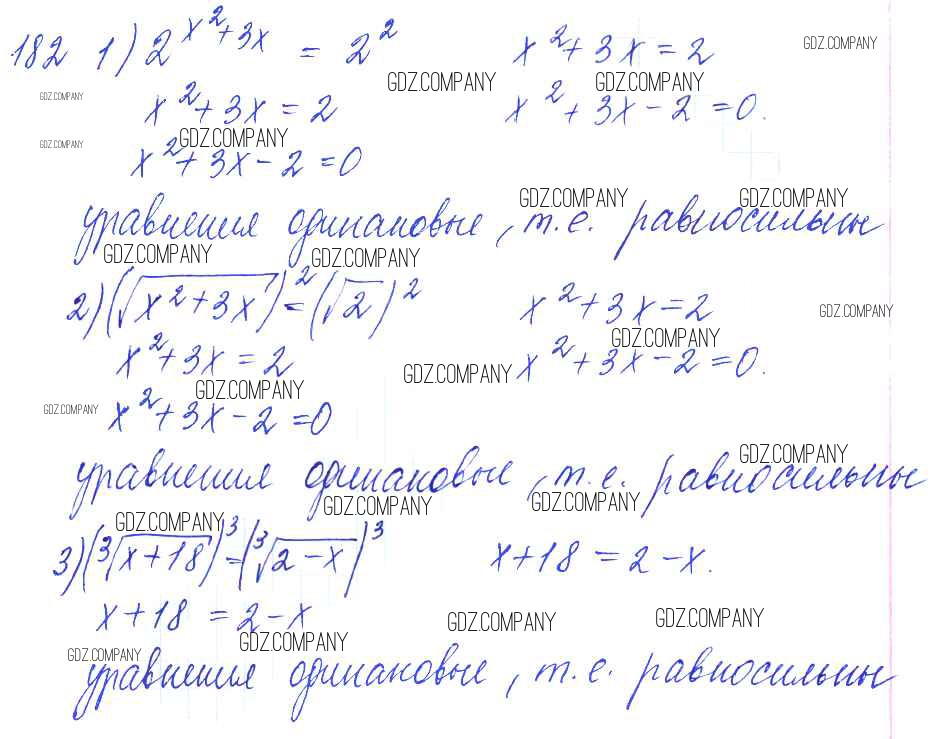 182 1) 2^{x^2+3x} = 2^2 x^2+3x=2 GDZ.COMPANY
GDZ.COMPANY GDZ.COMPANY
GDZ.COMPANY x^2+3x=2 x^2+3x-2=0.
GDZ.COMPANY GDZ.COMPANY
x^2+3x-2=0
GDZ.COMPANY GDZ.COMPANY
уравнения одинаковые, т.е. равносильны
GDZ.COMPANY GDZ.COMPANY
2) (√(x^2+3x))^2=(√2)^2 x^2+3x=2 GDZ.COMPANY
GDZ.COMPANY
x^2+3x=2 GDZ.COMPANY x^2+3x-2=0.
GDZ.COMPANY
GDZ.COMPANY x^2+3x-2=0
GDZ.COMPANY
уравнения одинаковые, т.е. равносильны
GDZ.COMPANY GDZ.COMPANY
GDZ.COMPANY
3) (∛(x+18))^3=(∛(2-x))^3 x+18=2-x.
x+18=2-x GDZ.COMPANY GDZ.COMPANY
GDZ.COMPANY GDZ.COMPANY
уравнения одинаковые, т.е. равносильны